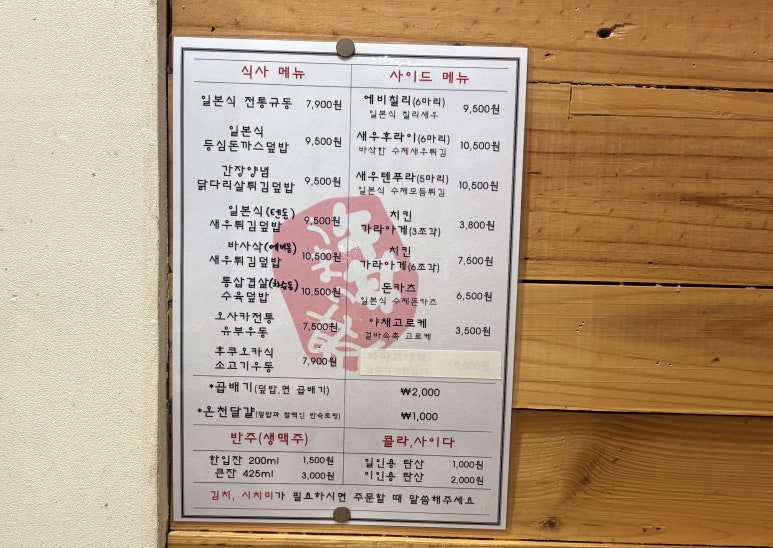 식사 메뉴
일본식 전통규동 7,900원
일본식
등심돈까스덮밥 9,500원
간장양념
닭다리살튀김덮밥 9,500원
일본식(텐동)
새우튀김덮밥 9,500원
바사삭(에비동)
새우튀김덮밥 10,500원
통삼겹살(차슈동)
수육덮밥 10,500원
오사카전통
유부우동 7,500원
후쿠오카식
소고기우동 7,900원
사이드 메뉴
에비칠리(6마리) 9,500원
일본식 칠리새우
새우후라이(6마리) 10,500원
바삭한 수제새우튀김
새우텐푸라(5마리) 10,500원
일본식 수제모듬튀김
치킨
가라아게(3조각) 3,800원
치킨
가라아게(6조각) 7,500원
돈카츠 6,500원
일본식 수제돈카츠
야채고로케 3,500원
겉바속촉 고로케
*곱배기(덮밥,면 곱배기) ₩2,000
*온천달걀(덮밥과 찰떡인 반숙토핑) ₩1,000
반주(생맥주)
한입잔 200ml 1,500원
큰잔 425ml 3,000원
콜라,사이다
일인용 탄산 1,000원
이인용 탄산 2,000원
김치, 시치미가 필요하시면 주문할 때 말씀해주세요